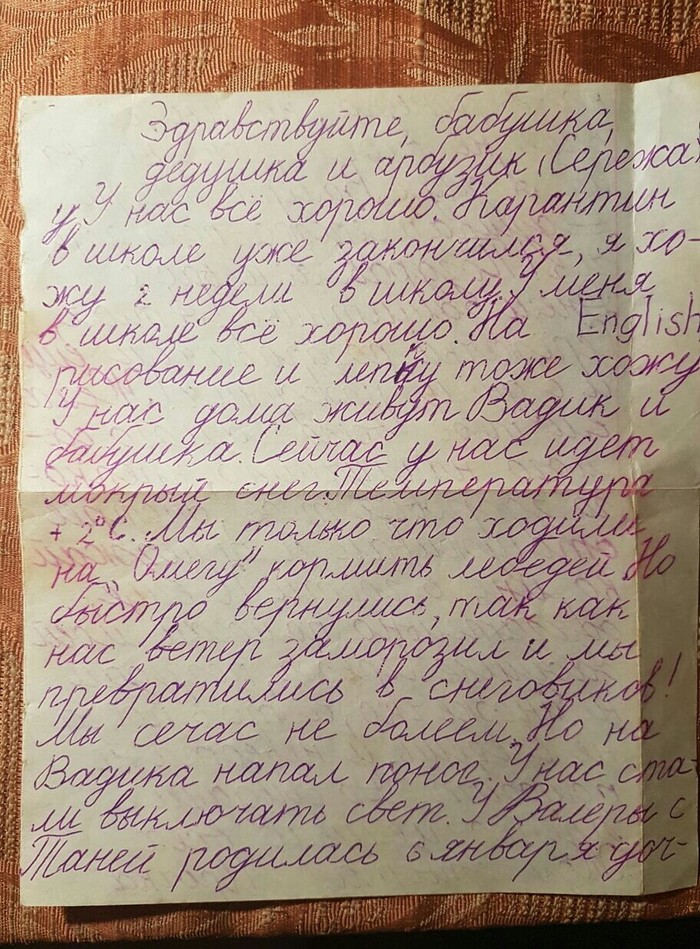 Здравствуйте, бабушка,
дедушка и арбузик (Сережа)
У нас всё хорошо. Карантин
в школе уже закончился, я хо-
жу 2 недели в школу. У меня
в школе всё хорошо. На English
рисование и лепку тоже хожу
У нас дома живут Вадик и
бабушка. Сейчас у нас идет
мокрый снег. Температура
+ 2°С. Мы только что ходили
на „Омегу" кормить лебедей. Но
быстро вернулись, так как
нас ветер заморозил и мы
превратились в снеговиков!
Мы сечас не болеем. Но на
Вадика напал понос. У нас ста-
ли выключать свет. У Валеры с
Таней родилась 6 января доч-